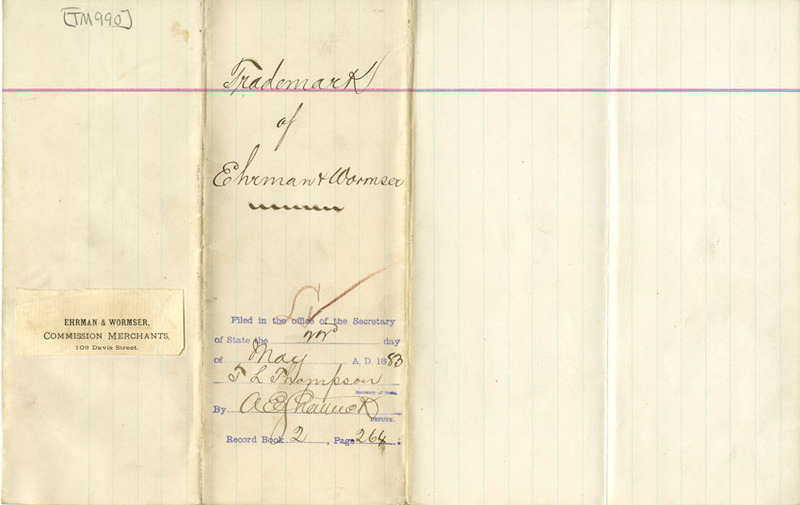 [TM990]
Trademark
of
Ehrman & Wormser
EHRMAN & WORMSER,
COMMISSION MERCHANTS,
108 Davis Street.
Filed in the office of the Secretary
of State the day
of May A. D. 1883
T L Thompson
Secretary of State.
By
DEPUTY.
Record Book 2, Page 264.